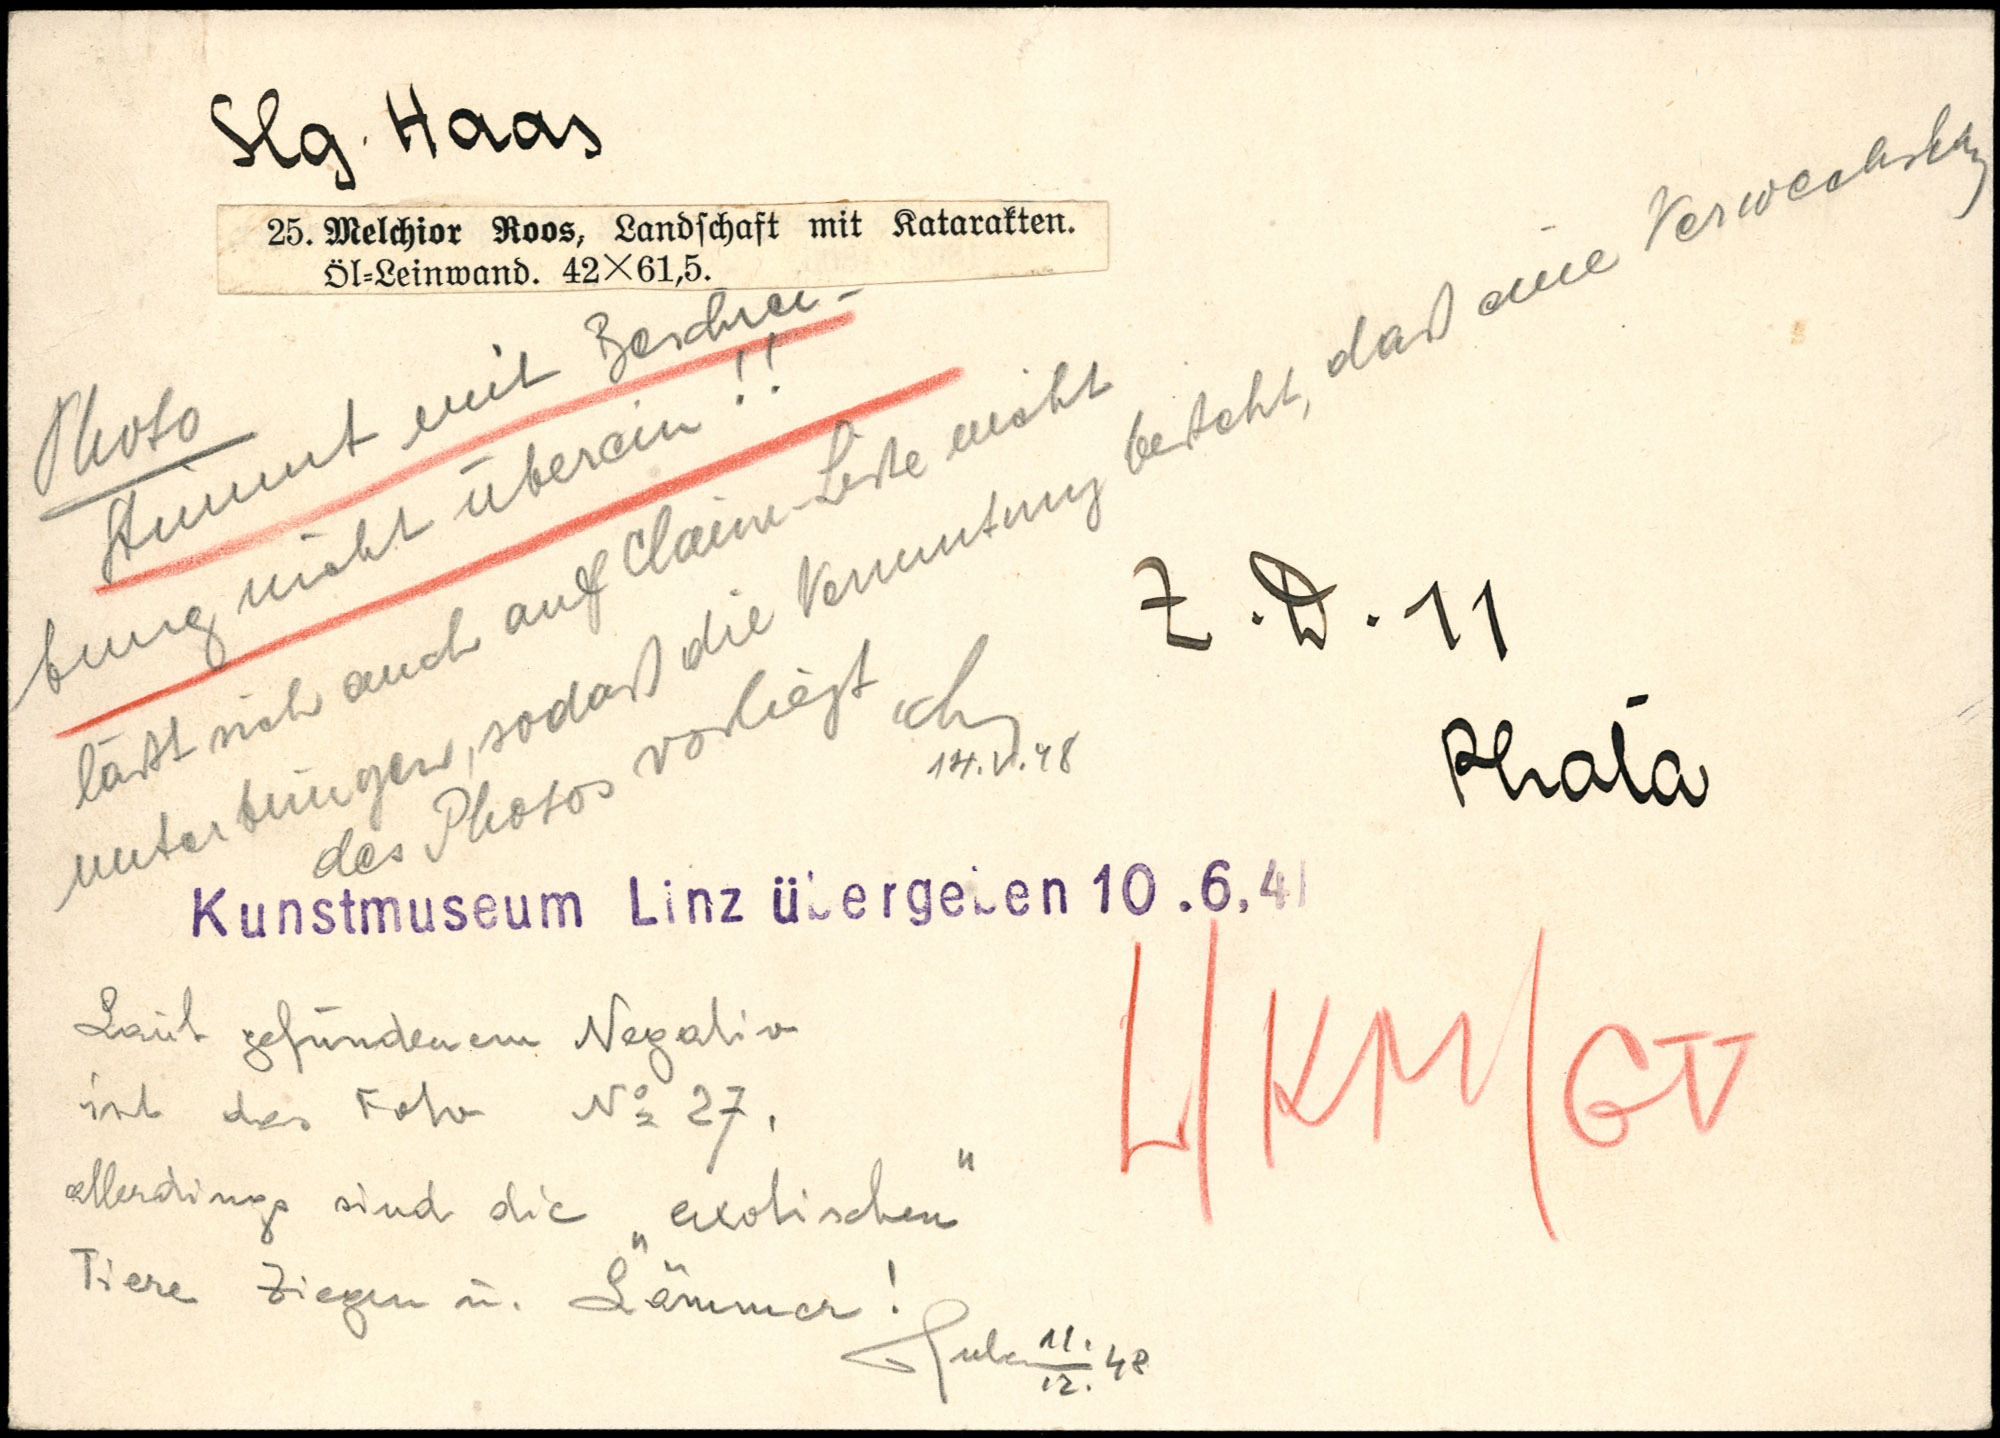 Slg. Haas
25. Melchior Roos, Landschaft mit Katarakten.
Öl=Leinwand. 42×61,5.
Photo
stimmt mit Beschrei-
bung nicht überein!!
läßt sich auch auf Claim-Liste nicht
unterbringen, sodaß die Vermutung besteht, daß eine Verwechslung
des Photos vorliegt
14.V.48
Z.D.11
Photo
Kunstmuseum Linz übergeben 10.6.41
L/KM/GV
Laut gefundenem Negativ
ist das Foto No 27,
allerdings sind die „exotischen"
Tiere Ziegen u. „Lämmer!
11.
12. 48